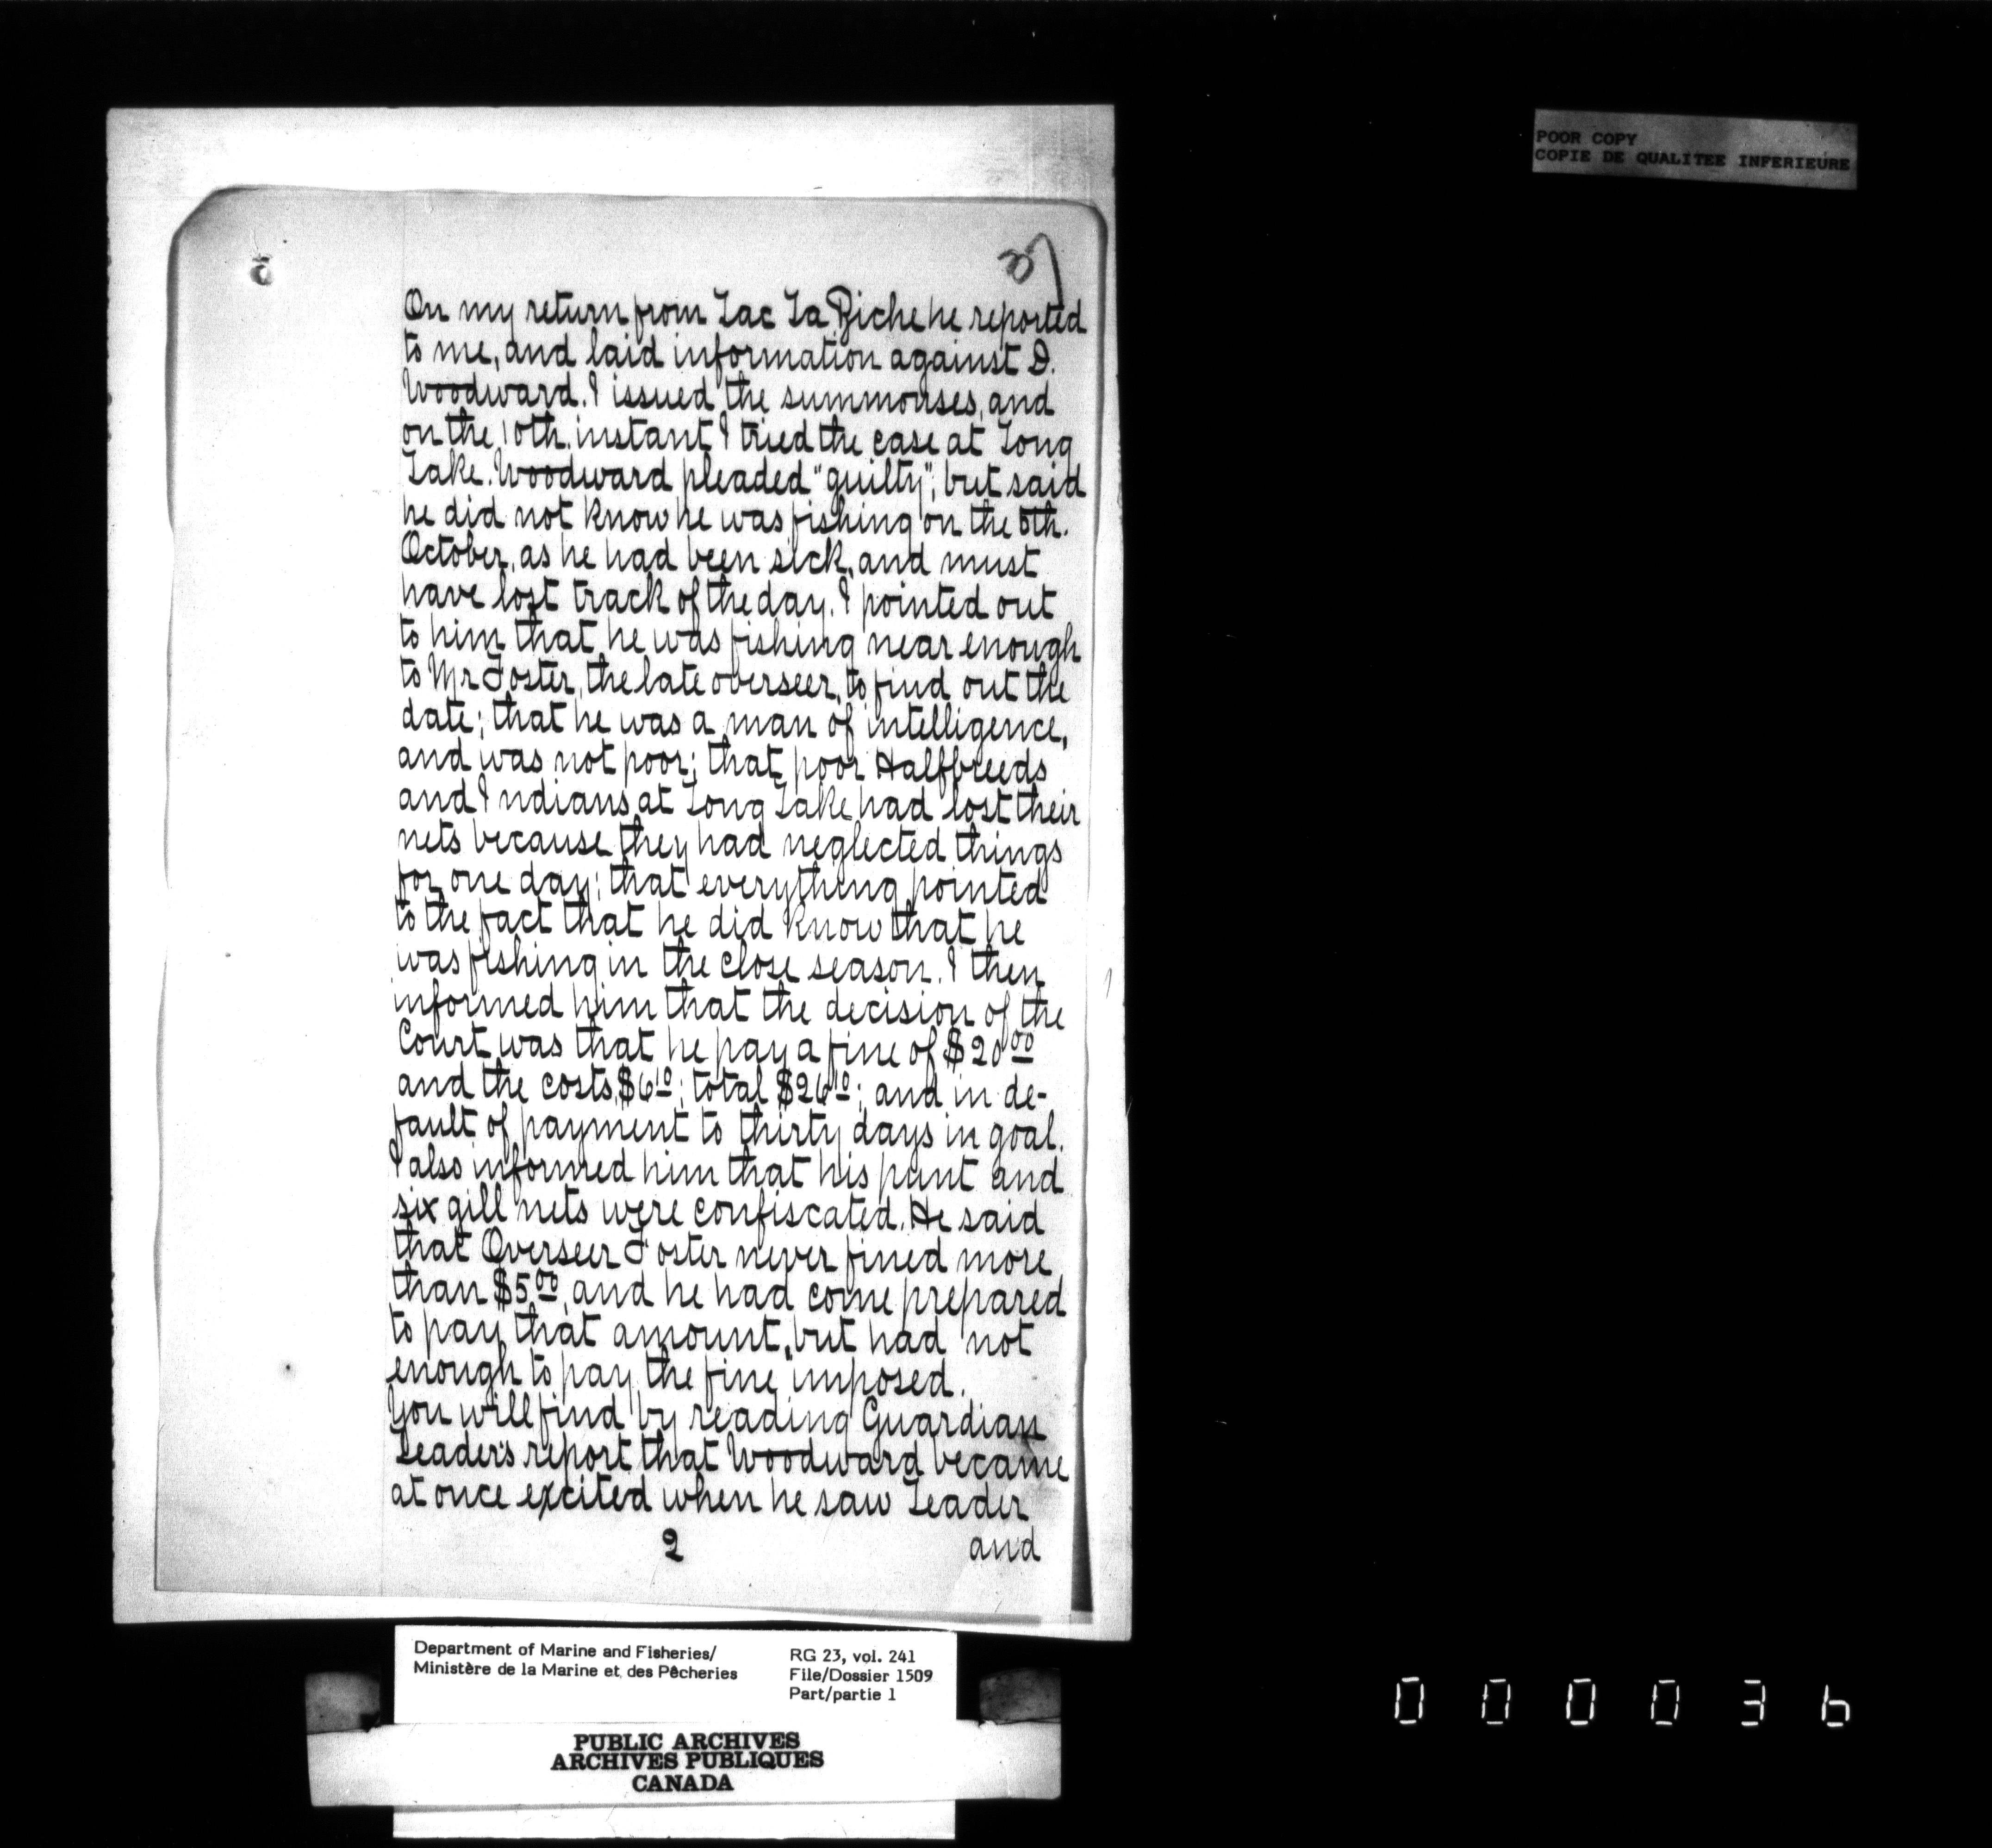 POOR COPY
COPIE DE QUALITEE INFERIEURE
On my return from Lac La Biche he reported
to me, and laid information against D.
Woodward. I issued the summonses, and
on the 10th. instant I tried the case at Long
Lake. Woodward pleaded "guilty", but said
he did not know he was fishing on the 6th.
October, as he had been sick, and must
have lost track of the day. I pointed out
to him that he was fishing near enough
to Mr Foster, the late overseer, to find out the
date; that he was a man of intelligence,
and was not poor; that poor Halfbreeds
and Indians at Long Lake had lost their
nets because they had neglected things
for one day; that everything pointed
to the fact that he did know that he
was fishing in the close season. I then
informed him that the decision of the
Court was that he pay a fine of $20 00
and the costs, $6 10; total $26 10; and in de-
fault of payment to thirty days in goal.
I also informed him that his punt and
six gill nets were confiscated. He said
that Overseer Foster never fined more
than $5 00, and he had come prepared
to pay that amount, but had not
enough to pay the fine imposed.
You will find by reading Guardian
Leader's report that Woodward became
at once excited when he saw Leader
2 and
Department of Marine and Fisheries/
Ministère de la Marine et des Pêcheries
RG 23, vol. 241
File/Dossier 1509
Part/partie 1
PUBLIC ARCHIVES
ARCHIVES PUBLIQUES
CANADA
000036